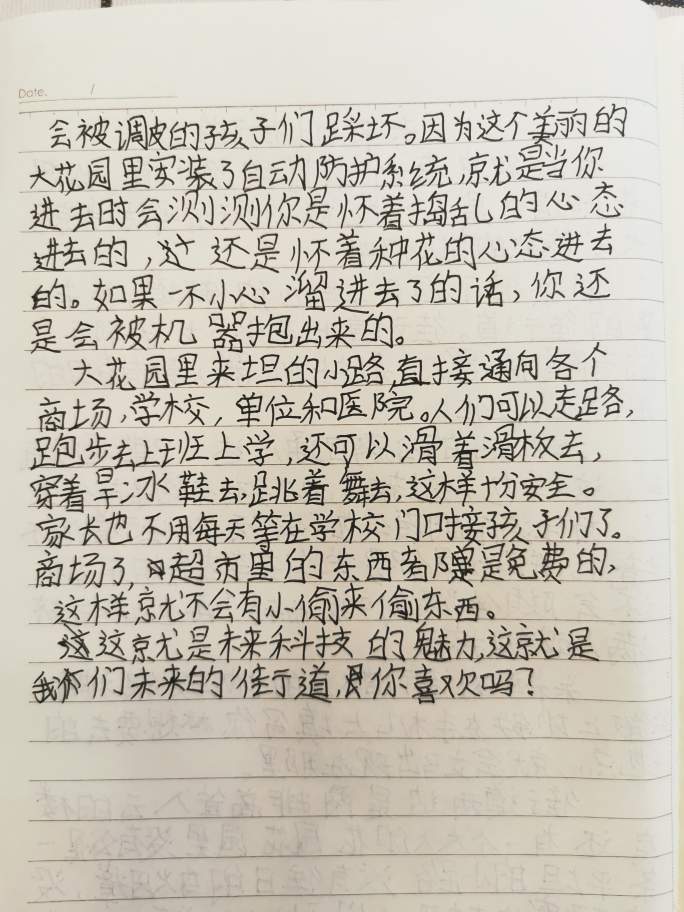 Date. /
会被调皮的孩子们踩坏。因为这个美丽的
大花园里安装了自动防护系统,就是当你
进去时会测测你是怀着捣乱的心态
进去的,还是怀着种花的心态进去
的。如果一不小心溜进去了的话,你还
是会被机器抱出来的。
大花园里来坦的小路,直接通向各个
商场,学校,单位和医院。人们可以走路,
跑步去上班上学,还可以滑着滑板去,
穿着旱冰鞋去,跳着舞去,这样十份安全。
家长也不用每天等在学校门口接孩子们了。
商场了,超市里的东西都是免费的,
这样就不会有小偷来偷东西。
这就是未来科技的魅力,这就是
我们未来的街道,你喜欢吗?